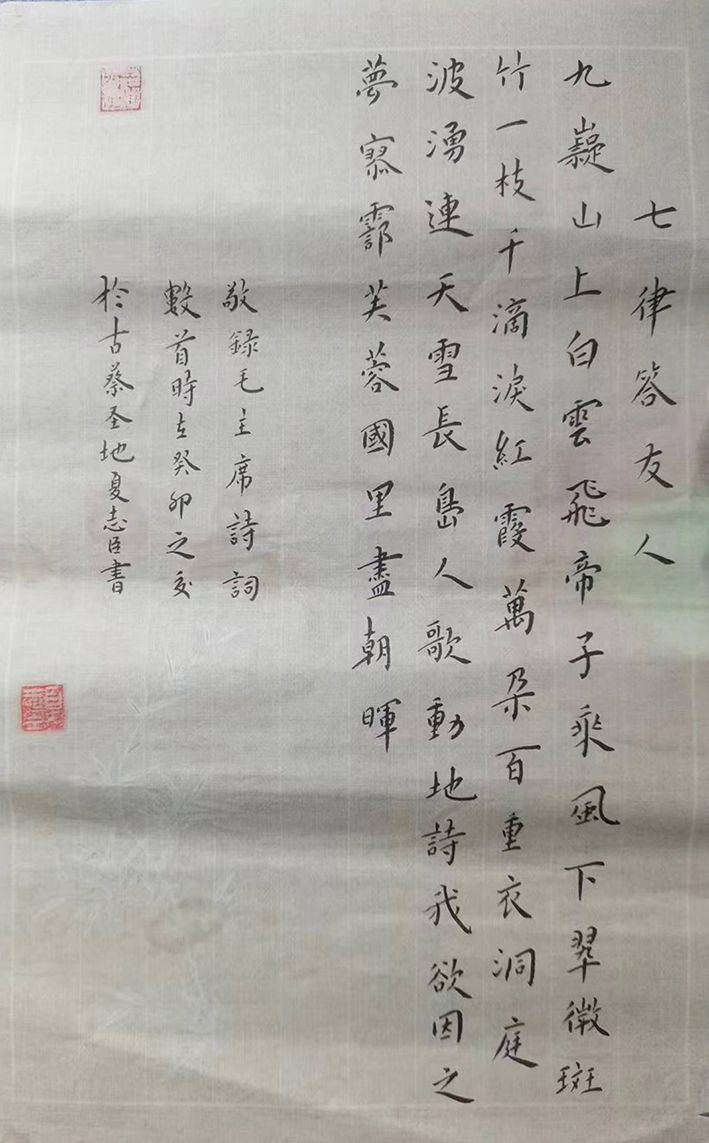 七律答友人
九嶷山上白雲飛帝子乘風下翠微斑
竹一枝千滴淚紅霞萬朵百重衣洞庭
波湧連天雪長島人歌動地詩我欲因之
夢寥霩芙蓉國里盡朝暉
敬録毛主席詩詞
數首時在癸卯之夏
於古蔡圣地夏志臣書